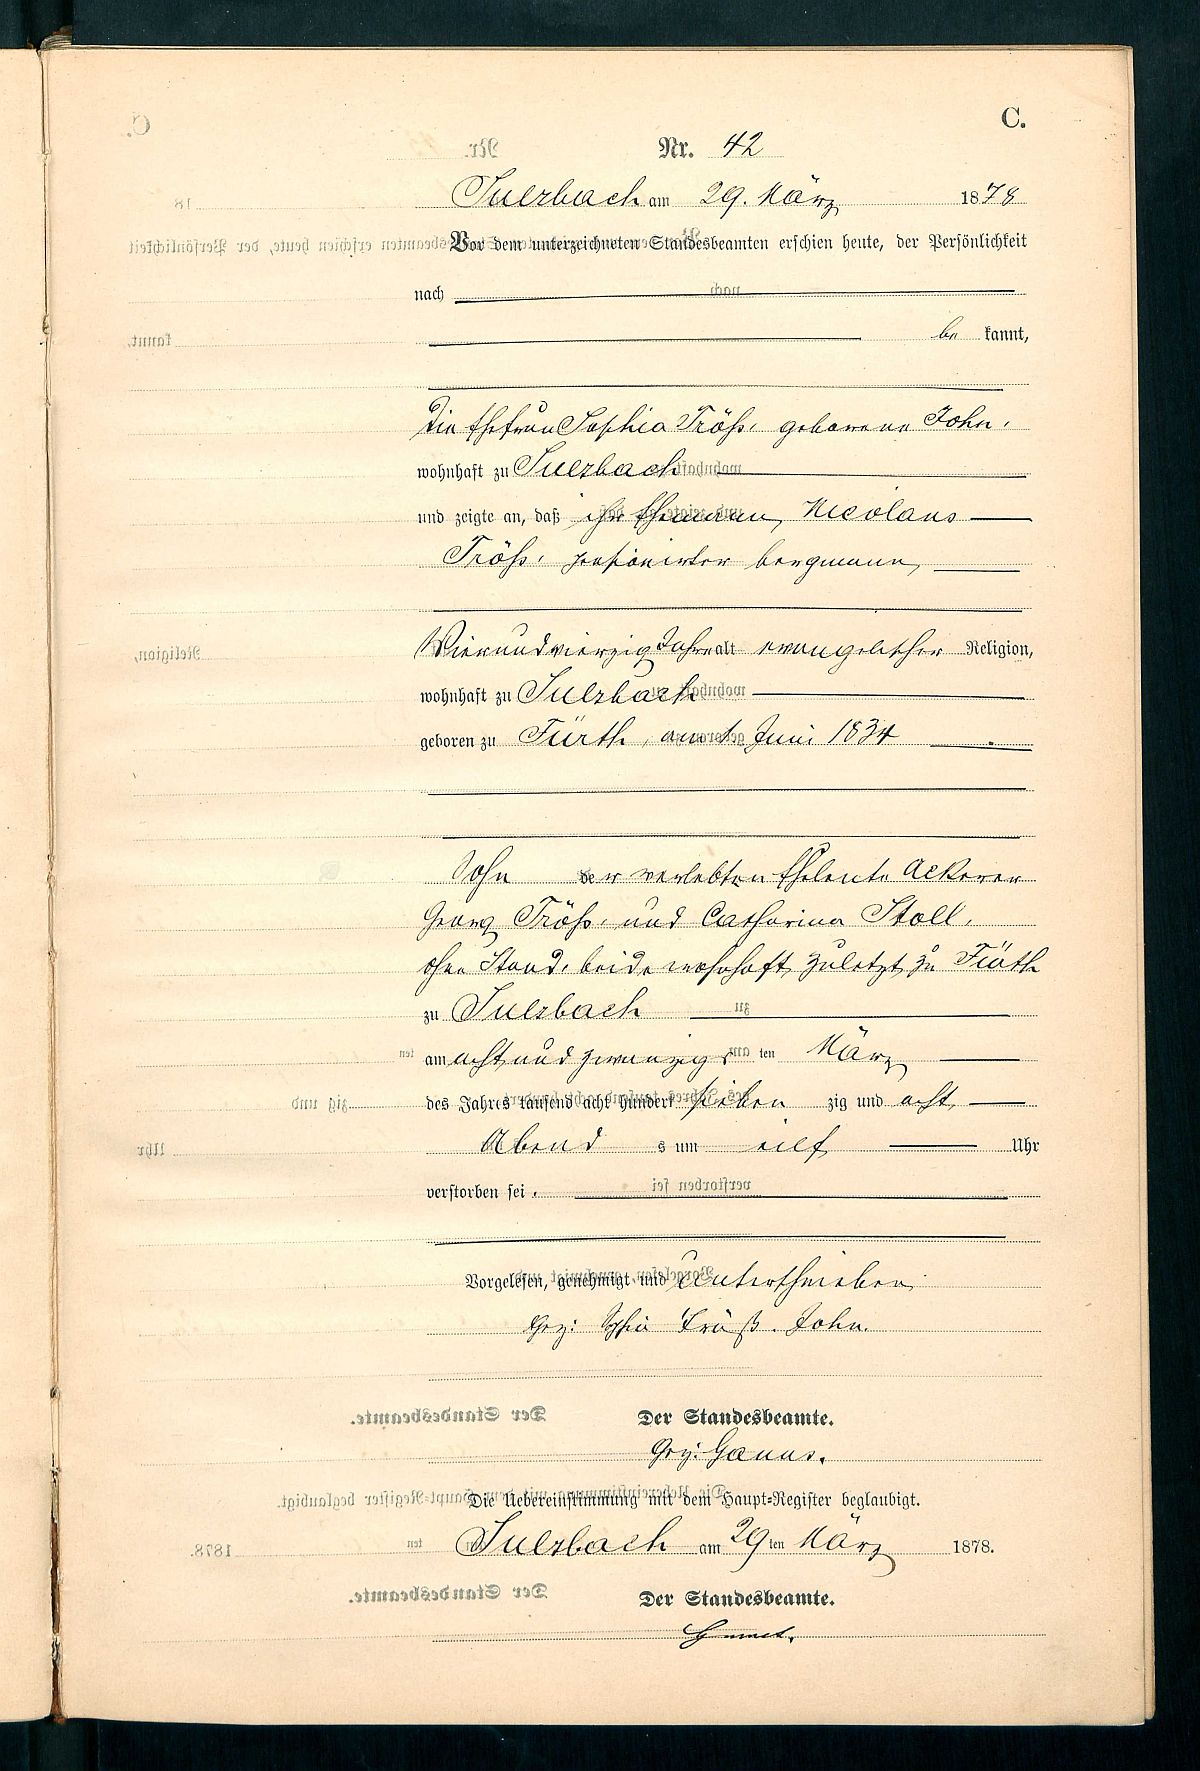 C.
Nr. 42
Sulzbach am 29. März 1878
Vor dem unterzeichneten Standesbeamten erschien heute, der Persönlichkeit
nach
be kannt,
die Ehefrau Sophia Tröß, geborene John,
wohnhaft zu Sulzbach
und zeigte an, daß ihr Ehemann, Nicolaus
Tröß, pensionirter bergmann,
Vierundvierzig Jahre alt evangelischer Religion,
wohnhaft zu Sulzbach
geboren zu Fürth, am 1. Juni 1834
Sohn der verlebten Eheleute Ackerer
Georg Tröß, und Catharina Stoll,
ohne Stand, beide wohnhaft zuletzt zu Fürth
zu Sulzbach
am acht und zwanzigs ten März
des Jahres tausend acht hundert sieben zig und acht
Abend s um eilf Uhr
verstorben sei.
Vorgelesen, genehmigt und unterschrieben
Gez: Sophia Tröß. John.
Der Standesbeamte.
Gez:
Die Uebereinstimmung mit dem Haupt-Register beglaubigt.
Sulzbach am 29ten März 1878.
Der Standesbeamte.